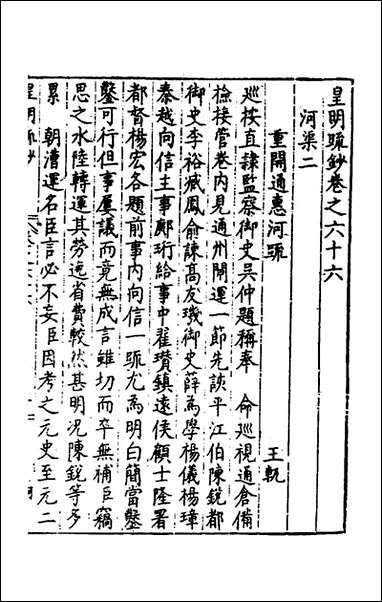 皇明疏鈔卷之六十六
河渠二
重開通惠河疏　王軏
巡按直隸監察御史吳仲題稱奉　命巡視通倉備
檢接管卷内見通州開運一節先該平江伯陳銳都
御史李裕臧鳳俞諫高友璣御史薛為學楊儀楊璋
秦越向信主事鄺珩給事中翟瓚鎮遠侯顧士隆署
都督楊宏各題前事内向信一疏尤為明白簡當鑿
鑿可行但事屢議而竟無成言雖切而卒無補臣竊
思之水陸轉運其勞逸省費較然甚明况陳銳等多
累　朝漕運名臣言必不妄臣因考之元史至元二
皇明疏鈔